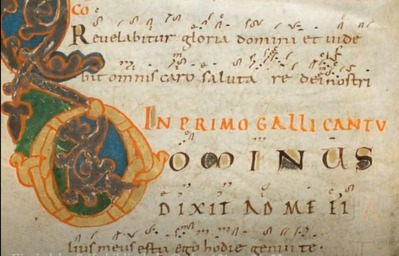 CO
Revelabitur gloria domini et vide
bit omnis caro saluta re dei nostri
IN PRIMO GALLI CANTU
DOMINUS
DIXIT AD ME FI
lius meus es tu ego hodie genui te.